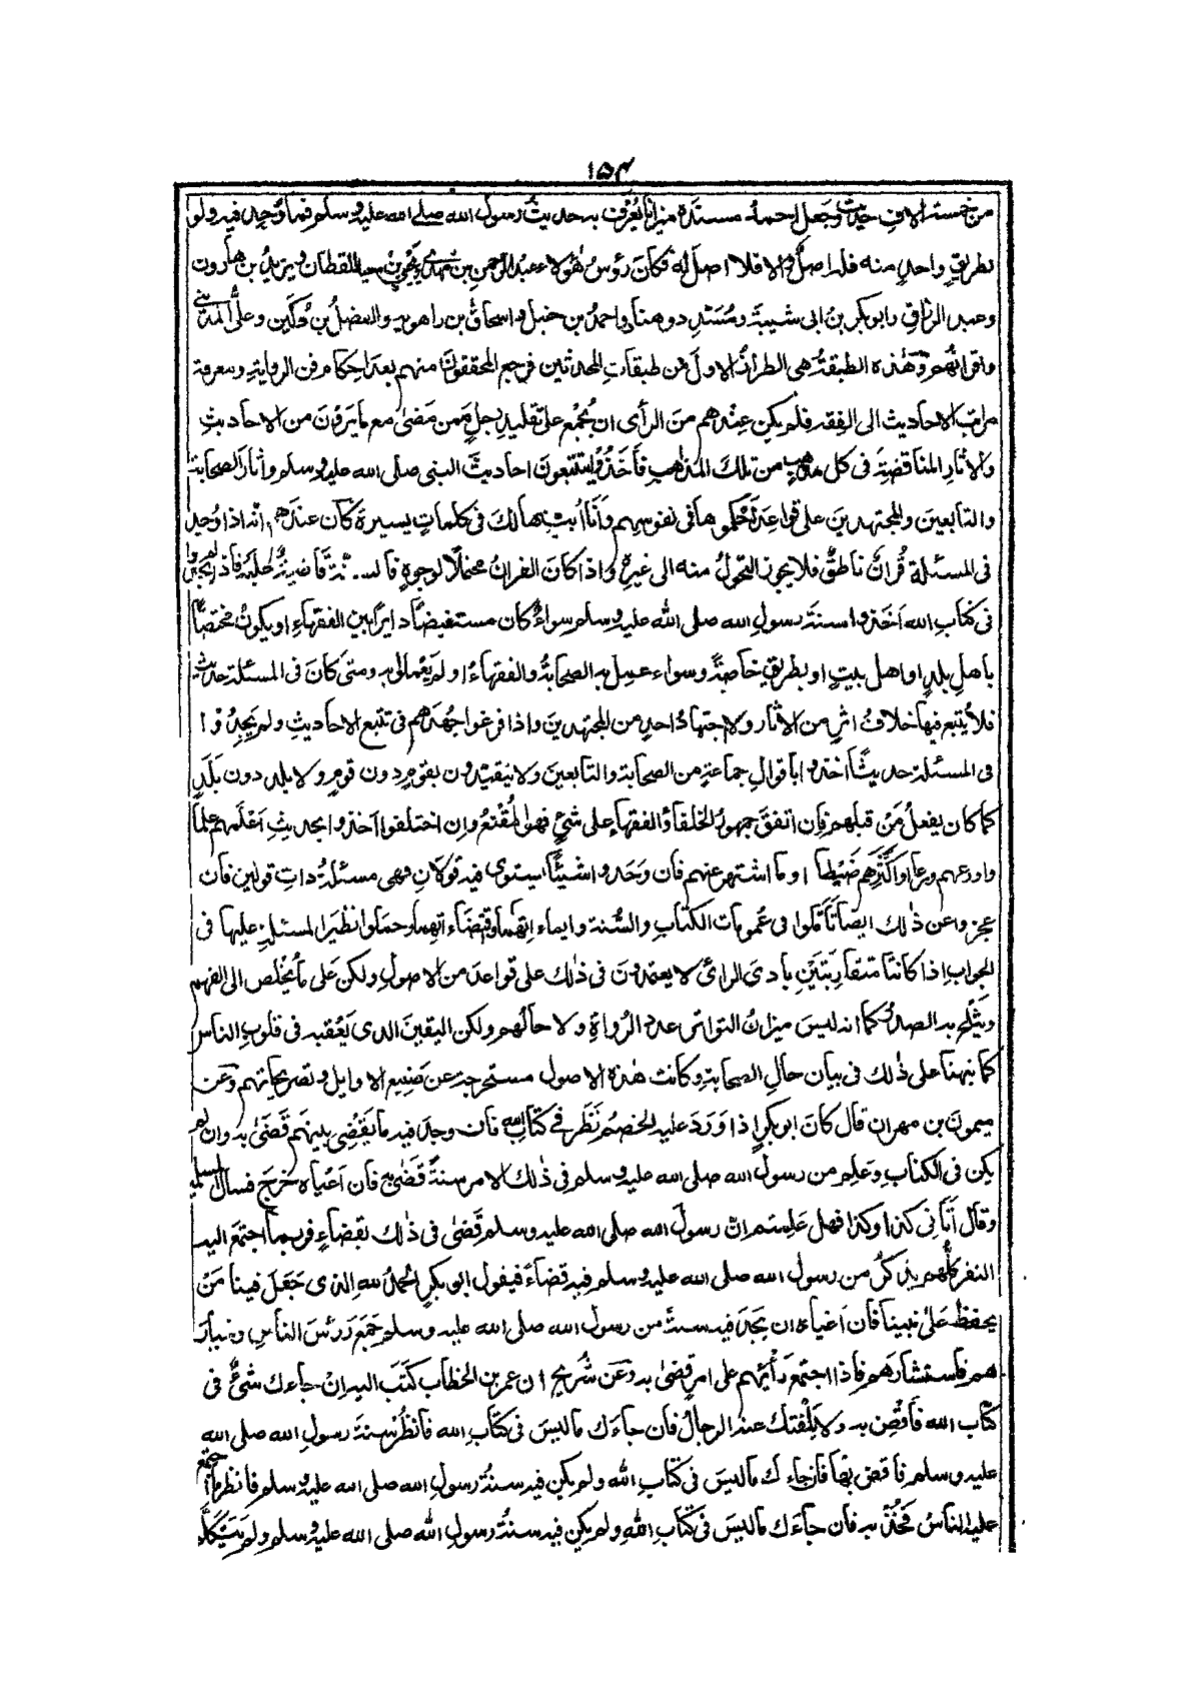 ١٥٤
من خمسة الاف حديث وجعل احمد مسنده ميزانا يُعْرَف به حديث رسول الله صلى الله عليه وسلم فما وُجِد فيه ولو
بطريق واحد منه فله اصلٌ والا فلا اصل له فكان رؤسُ هٰؤلاء عبد الرحمن بن مهدى ويحيى بن سعيد القطان ويزيد بن هارون
وعبد الرزاق وابو بكر بن ابى شيبة ومُسَدَّد وهناد واحمد بن حنبل واسحاق بن راهويه والفضل بن دُكَين وعلى المدينى
واقرانهم وهٰذه الطبقة هى الطراز الاول من طبقات المحدثين فرجع المحققون منهم بعد احكام فن الرواية ومعرفة
مراتب الاحاديث الى الفقه فلم يكن عندهم من الرأى ان يُجْمَع على تقليد رجل ممن مَضىٰ مع ما يَرَوْنَ من الاحاديث
والاثار المناقضة فى كل مذهب من تلك المذاهب فأخذوا يتتبعون احاديث النبى صلى الله عليه وسلم واٰثار الصحابة
والتابعين والمجتهدين على قواعد احكموها فى نفوسهم وأنا أبينها لك فى كلمات يسيرة كان عندهم انه اذا وُجِد
فى المسئلة قُراٰن ناطقٌ فلا يجوز التحولُ منه الى غيره واذا كان القران محتملًا لوجوهٍ فالسنة قاضيةٌ عليه فاذا لم يجدوا
فى كتاب الله أخذوا سنة رسول الله صلى الله عليه وسلم سواءٌ كان مستفيضًا دايرًا بين الفقهاء او يكون مختصًّا
باهل بلدٍ او اهل بيتٍ او بطريقٍ خاصةً وسواء عمل به الصحابةُ والفقهاءُ او لم يَعْملوا به ومتى كان فى المسئلة حديث
فلا يُتبع فيها خلافُ اثرٍ من الاٰثار ولا اجتهادُ احدٍ من المجتهدين واذا فرغوا جُهْدَهم فى تتبع الاحاديث ولم يَجِدُوا
فى المسئلة حديثًا اخذوا باقوال جماعةٍ من الصحابة والتابعين ولا يتقيدون بقومٍ دون قومٍ ولا بلدٍ دون بَلَدٍ
كما كان يفعلُ مَنْ قبلهم فإن اتفقَ جمهورُ الخلفاء والفقهاءِ على شئٍ فهو المُقْنَعُ وإن اختلفوا اخذوا بحديثِ أعْلَمِهم علمًا
واورعهم ورعًا او اكثرهم ضبطا او ما اشتهر عنهم فان وجدوا شيئًا يستوى فيه قولان فهى مسئلةٌ ذات قولين فان
عجزوا عن ذٰلك ايضًا تأمّلوا فى عُمومات الكتاب والسُّنة وايماءاتهما واقتضاءاتهما وحملوا نظير المسئلة عليها فى
الجواب اذا كانتا متقاربَتَيْنِ بادى الرائ لا يعتمدون فى ذٰلك على قواعد من الاصول ولكن على ما يَخْلُص الى الفهم
ويَثْلج به الصدر كما انه ليس ميزانُ التواتر عدد الرُواة ولا حالهم ولكن اليقين الذى يَعْقبه فى قلوب الناس
كما نبهنا على ذٰلك فى بيان حال الصحابة وكانت هٰذه الاصول مستخرجة عن صَنِيع الاوايل وتصريحاتهم وعَن
ميمون بن مهران قال كان ابو بكرٍ اذا وَرَدَ عليه الخصم نَظَر فى كتاب الله فان وجد فيه ما يَقْضِى بينهم قَضىٰ به وان لم
يكن فى الكتاب وعَلِم من رسول الله صلى الله عليه وسلم فى ذٰلك الامر سنةً قَضىٰ به فان اَعْياه خَرَجَ فسال المسلمين
وقال أتانى كذا وكذا فهل عَلِمتم انّ رسولَ الله صلى الله عليه وسلم قَضىٰ فى ذٰلك بقضاءٍ فربما اجتمع اليه
النفر كلُّهم يذكر من رسول الله صلى الله عليه وسلم فيه قضاءً فيقول ابو بكرٍ الحمدُ لله الذى جَعَل فينا مَنْ
يحفظ عَلىٰ نبينا فان اَعْياه ان يَجدَ فيه سنةً من رسول الله صلى الله عليه وسلم جَمَعَ رؤسَ الناس وخيار
هم فاستشارهم فاذا اجتمع رأيهم على امرٍ قضىٰ به وعَن شُرَيح ان عمر بن الخطاب كَتَبَ اليه انْ جاءك شئٌ فى
كتاب الله فَاقْضِ به ولا يَلْفِتك عنه الرجالُ فان جاءَك ما ليس فى كتاب الله فانظُر سنةَ رسولِ الله صلى الله
عليه وسلم فاقض بها فان جاءك ما ليسَ فى كتابِ الله ولم يكن فيه سنةُ رسولِ الله صلى الله عليه وسلم فانظر ما اجتمع
عليه الناسُ فخُذْ به فان جاءَك ما ليسَ فى كتابِ اللهِ ولم يكن فيه سنةُ رسولِ الله صلى الله عليه وسلم ولم يَتكلَّم